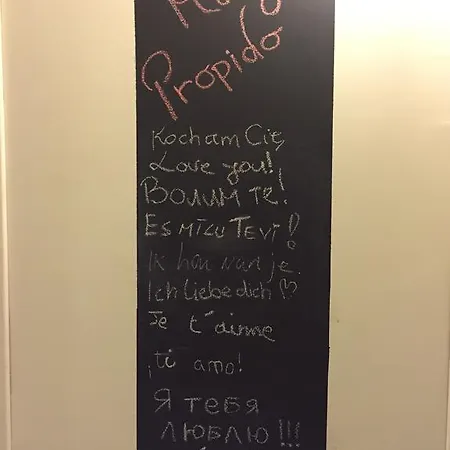 Propido
Kocham Cię
Love you!
Волим те!
Es mīlu Tevi!
Ik hou van je.
Ich liebe dich ♡
Je t'aime
¡ti amo!
Я тебя
ЛЮБЛЮ!!!